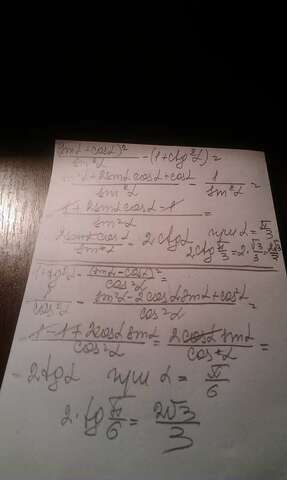 (sinα+cosα)²/sin²α − (1+ctg²α) =
sin²α+2sinα cosα+cos²α/sin²α − 1/sin²α =
1+2sinα cosα−1/sin²α =
2sinα cosα/sin²α = 2ctgα при α = π/3
2ctg π/3 = 2·√3/3 = 2√3/3
(1+tg²α) − (sinα−cosα)²/cos²α =
1/cos²α − sin²α−2cosα sinα+cos²α/cos²α =
= 1−1+2cosα sinα/cos²α = 2cosα sinα/cos²α =
= 2tgα при α = π/6
2·tg π/6 = 2√3/3